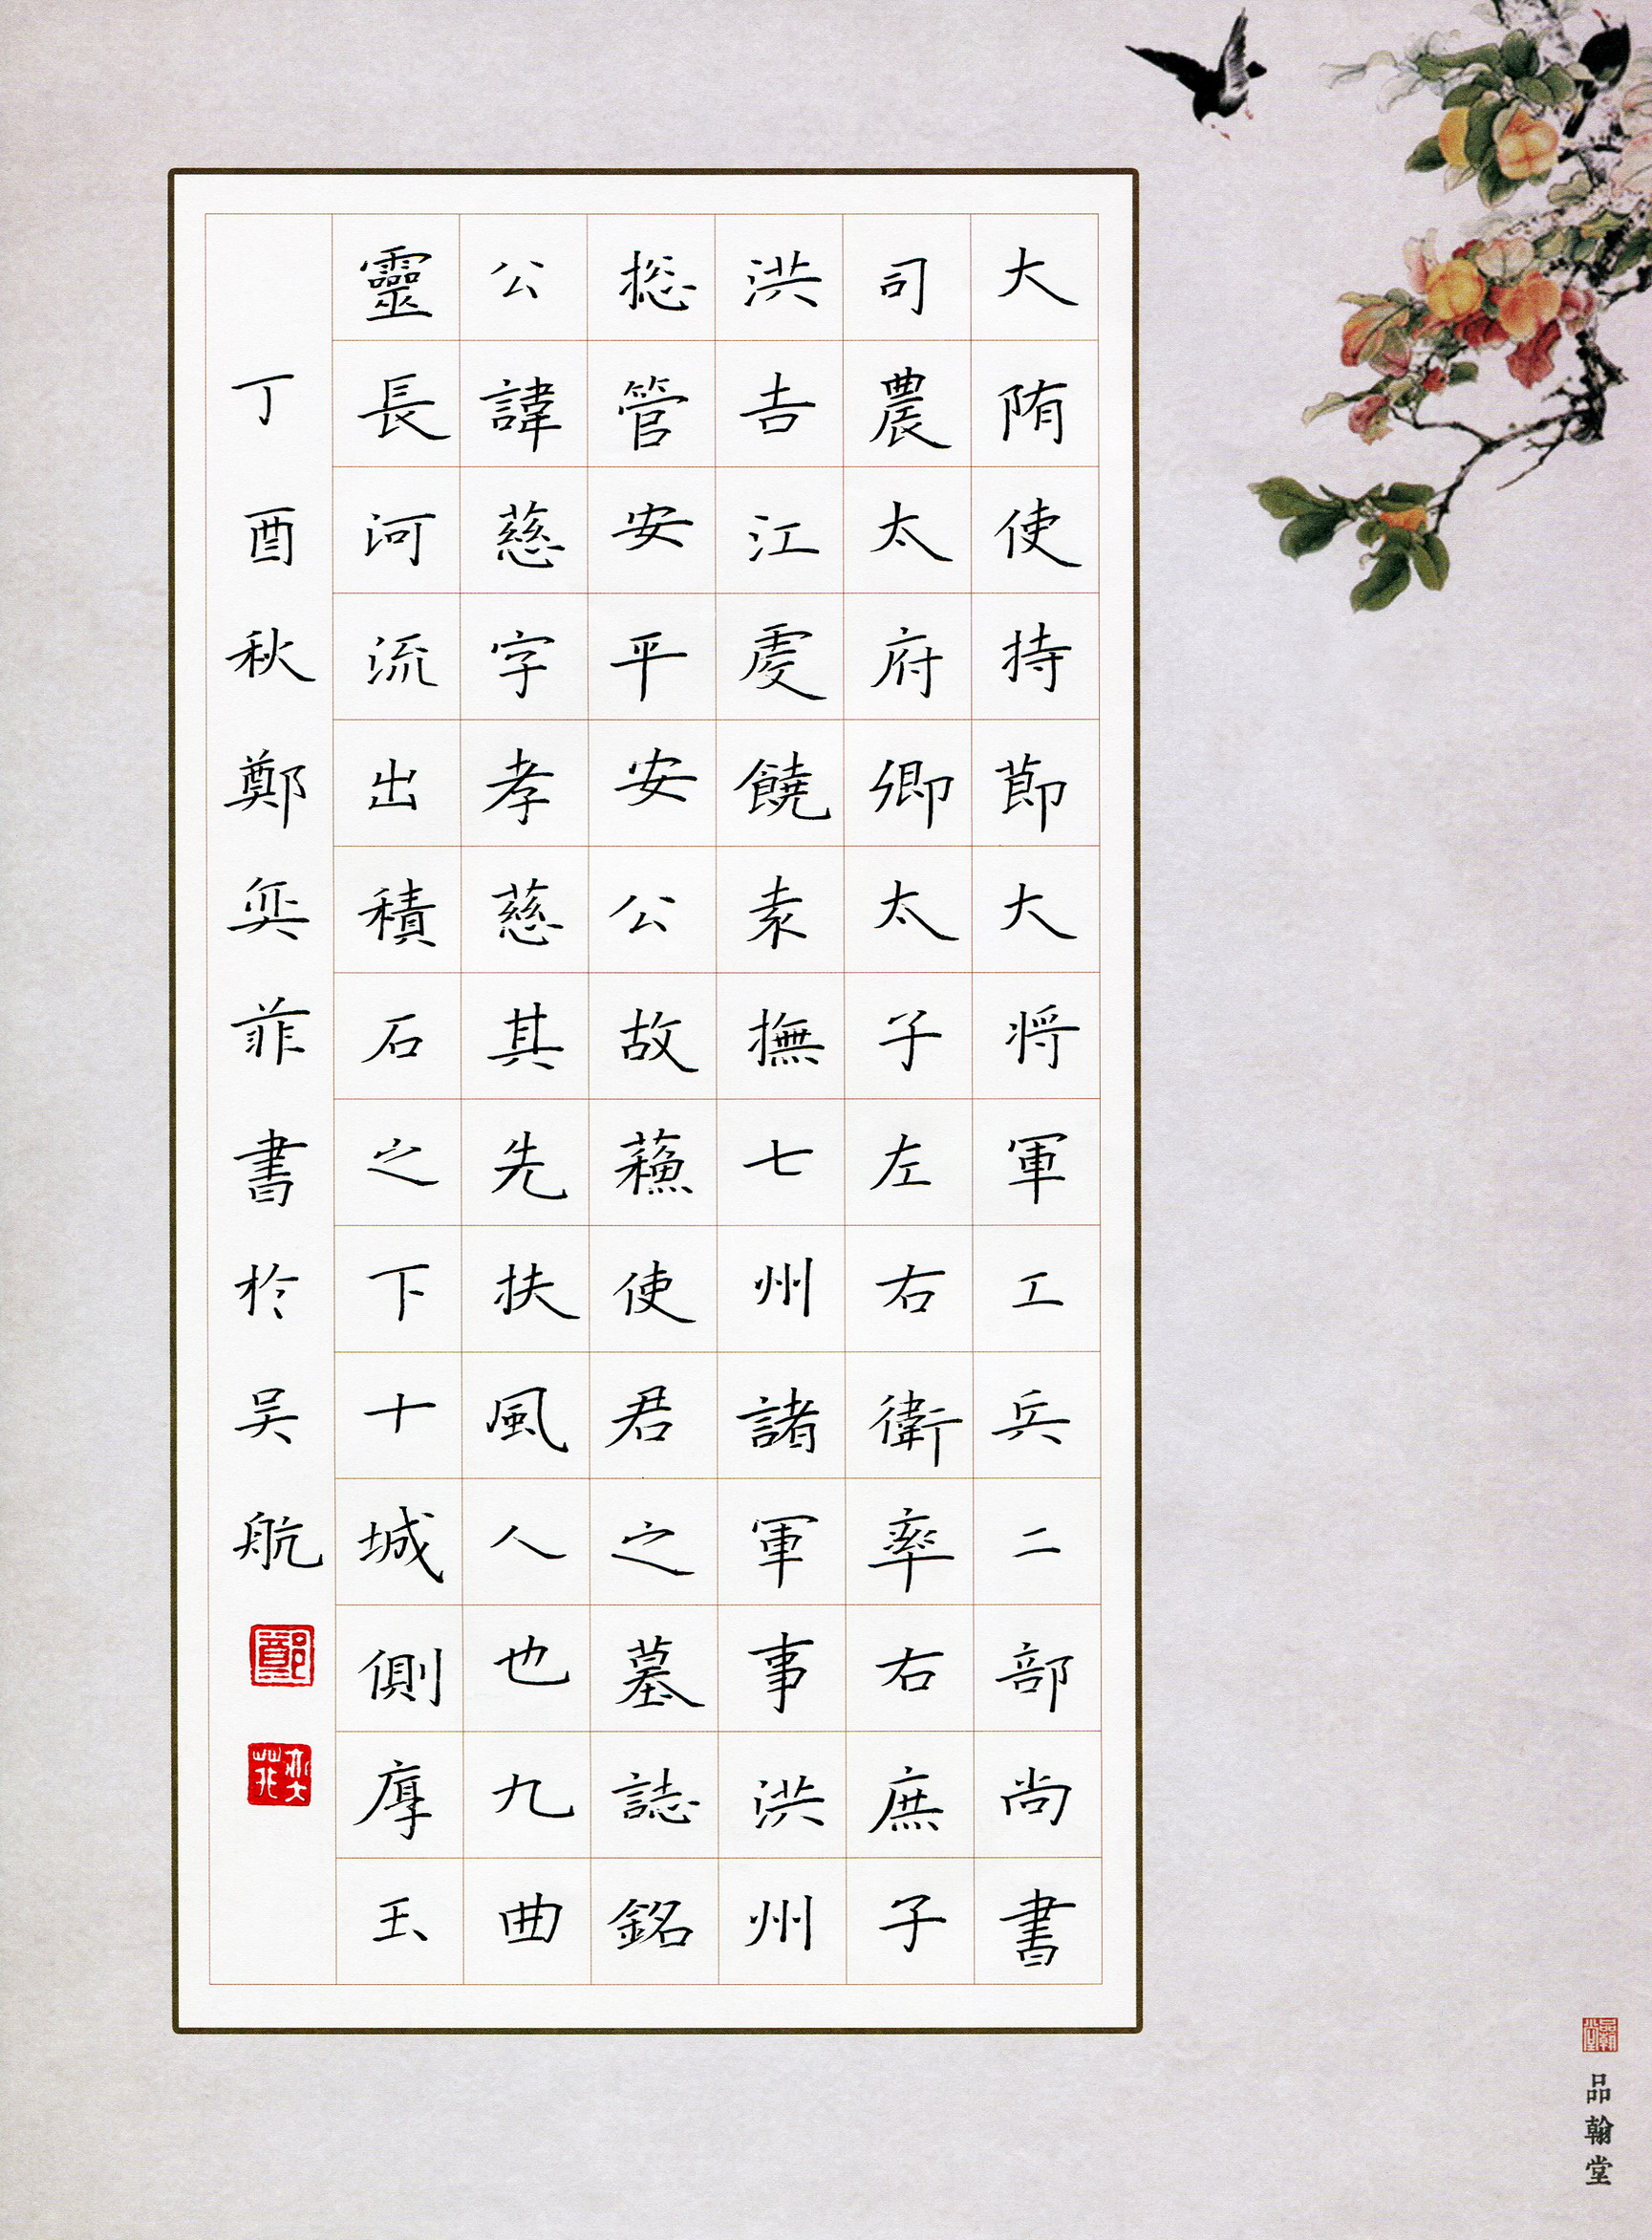 大隋使持節大将軍工兵二部尚書
司農太府卿太子左右衛率右庶子
洪吉江虔饒袁撫七州諸軍事洪州
捴管安平安公故蘓使君之墓誌銘
公諱慈字孝慈其先扶風人也九曲
靈長河流出積石之下十城側厚玉
丁酉秋鄭奕菲書於吴航
鄭
奕菲
品翰堂
品翰堂